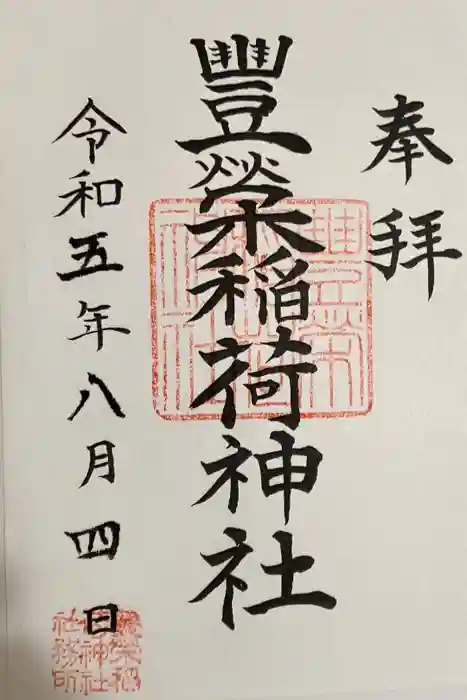 奉拜
豐榮稲荷神社
令和五年八月四日